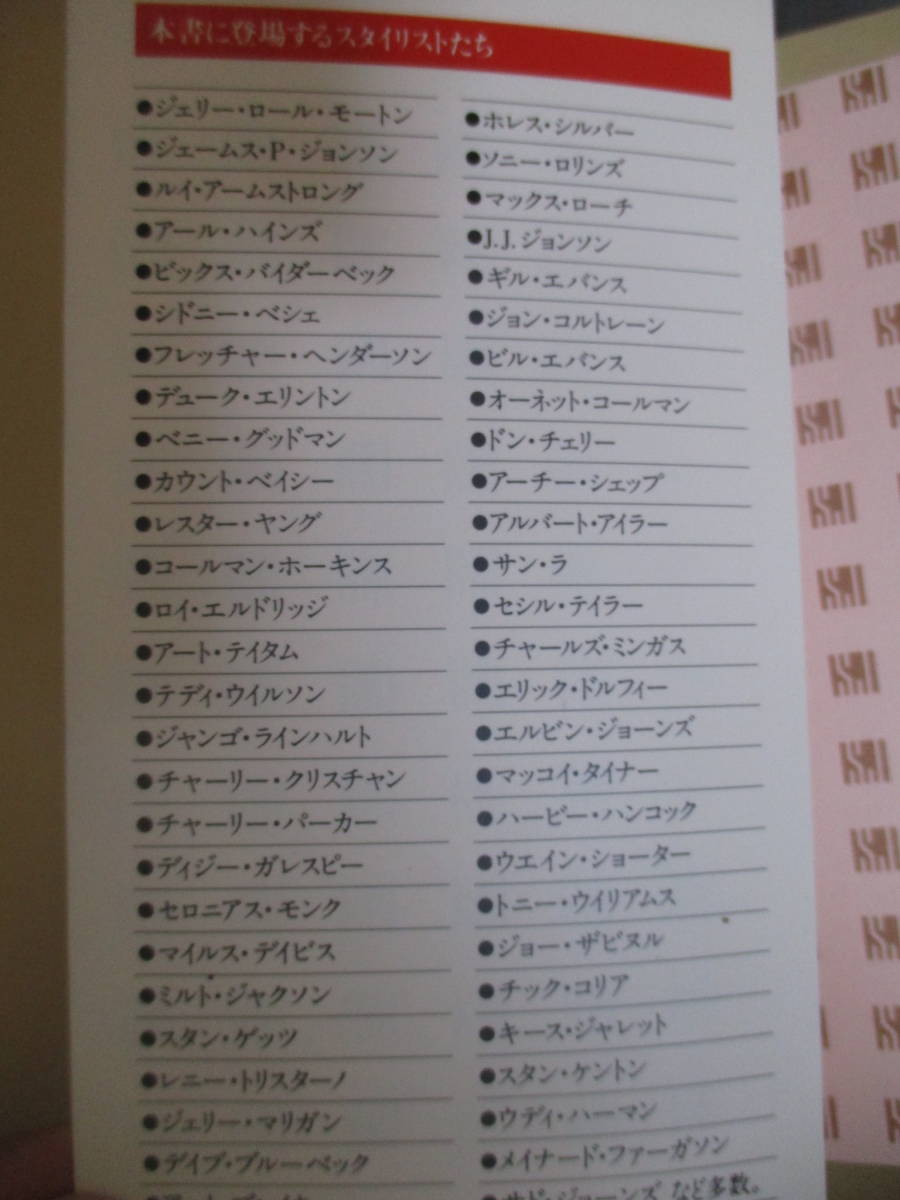 本書に登場するスタイリストたち
●ジェリー・ロール・モートン
●ジェームス・P・ジョンソン
●ルイ・アームストロング
●アール・ハインズ
●ビックス・バイダーベック
●シドニー・ベシェ
●フレッチャー・ヘンダーソン
●デューク・エリントン
●ベニー・グッドマン
●カウント・ベイシー
●レスター・ヤング
●コールマン・ホーキンス
●ロイ・エルドリッジ
●アート・テイタム
●テディ・ウイルソン
●ジャンゴ・ラインハルト
●チャーリー・クリスチャン
●チャーリー・パーカー
●ディジー・ガレスピー
●セロニアス・モンク
●マイルス・デイビス
●ミルト・ジャクソン
●スタン・ゲッツ
●レニー・トリスターノ
●ジェリー・マリガン
●デイブ・ブルーベック
●ホレス・シルバー
●ソニー・ロリンズ
●マックス・ローチ
●J.J.ジョンソン
●ギル・エバンス
●ジョン・コルトレーン
●ビル・エバンス
●オーネット・コールマン
●ドン・チェリー
●アーチー・シェップ
●アルバート・アイラー
●サン・ラ
●セシル・テイラー
●チャールズ・ミンガス
●エリック・ドルフィー
●エルビン・ジョーンズ
●マッコイ・タイナー
●ハービー・ハンコック
●ウエイン・ショーター
●トニー・ウイリアムス
●ジョー・ザビヌル
●チック・コリア
●キース・ジャレット
●スタン・ケントン
●ウディ・ハーマン
●メイナード・ファーガソン
●サド・ジョーンズ など多数。